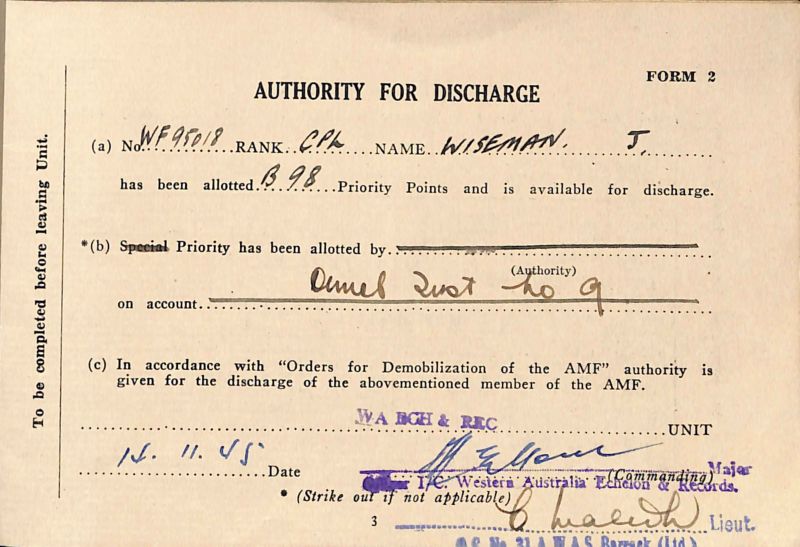 FORM 2
AUTHORITY FOR DISCHARGE
To be completed before leaving Unit.
(a) No. WF95018 RANK CPL NAME WISEMAN. J.
has been allotted B 98 Priority Points and is available for discharge.
*(b) Special Priority has been allotted by
(Authority)
Demob Inst No 9
on account
(c) In accordance with "Orders for Demobilization of the AMF" authority is
given for the discharge of the abovementioned member of the AMF.
WA ECH & REC UNIT
14. 11. 45 Date
(Commanding) Major
I/C. Western Australia Echelon & Records.
* (Strike out if not applicable)
3
Lieut.
O.C. No. 21 A.W.A.S. Barrack (Ltd.)